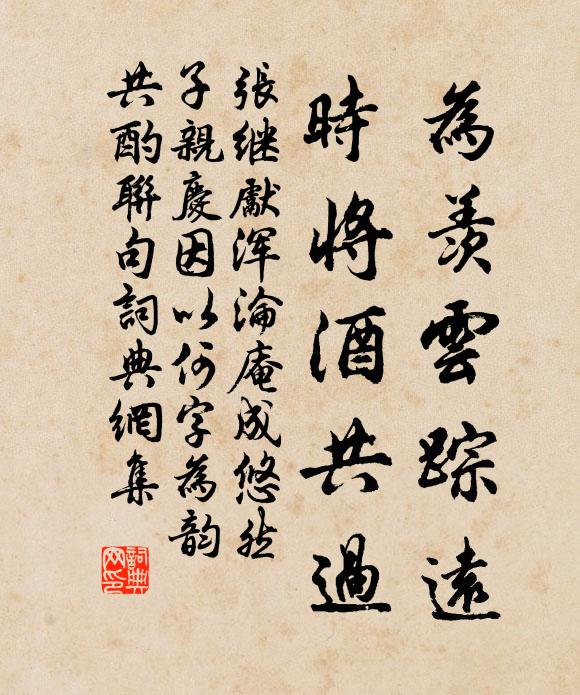 為羨雲蹤遠
時將酒共過
張继獻渾淪庵成悠然
子親慶因以何字為韵
共酌聯句詞典網集
詞典网印